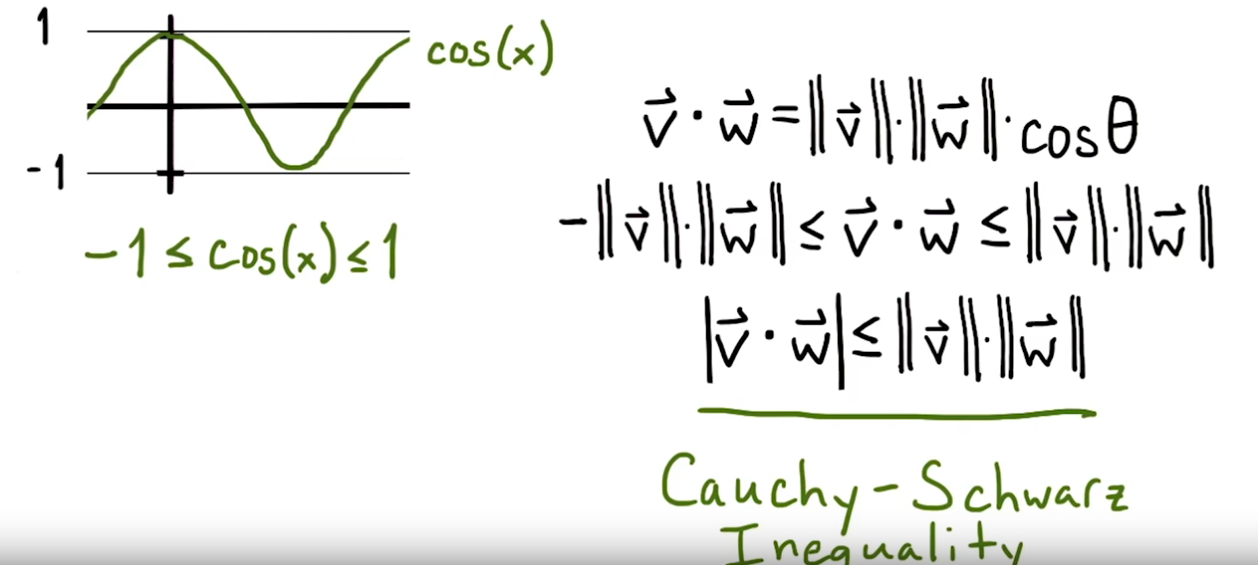 1
cos(x)
-1
-1 ≤ cos(x) ≤ 1
v⃗ · w⃗ = ‖v⃗‖·‖w⃗‖· cos θ
-‖v⃗‖·‖w⃗‖ ≤ v⃗ · w⃗ ≤ ‖v⃗‖·‖w⃗‖
|v⃗ · w⃗| ≤ ‖v⃗‖·‖w⃗‖
Cauchy-Schwarz
Inequality